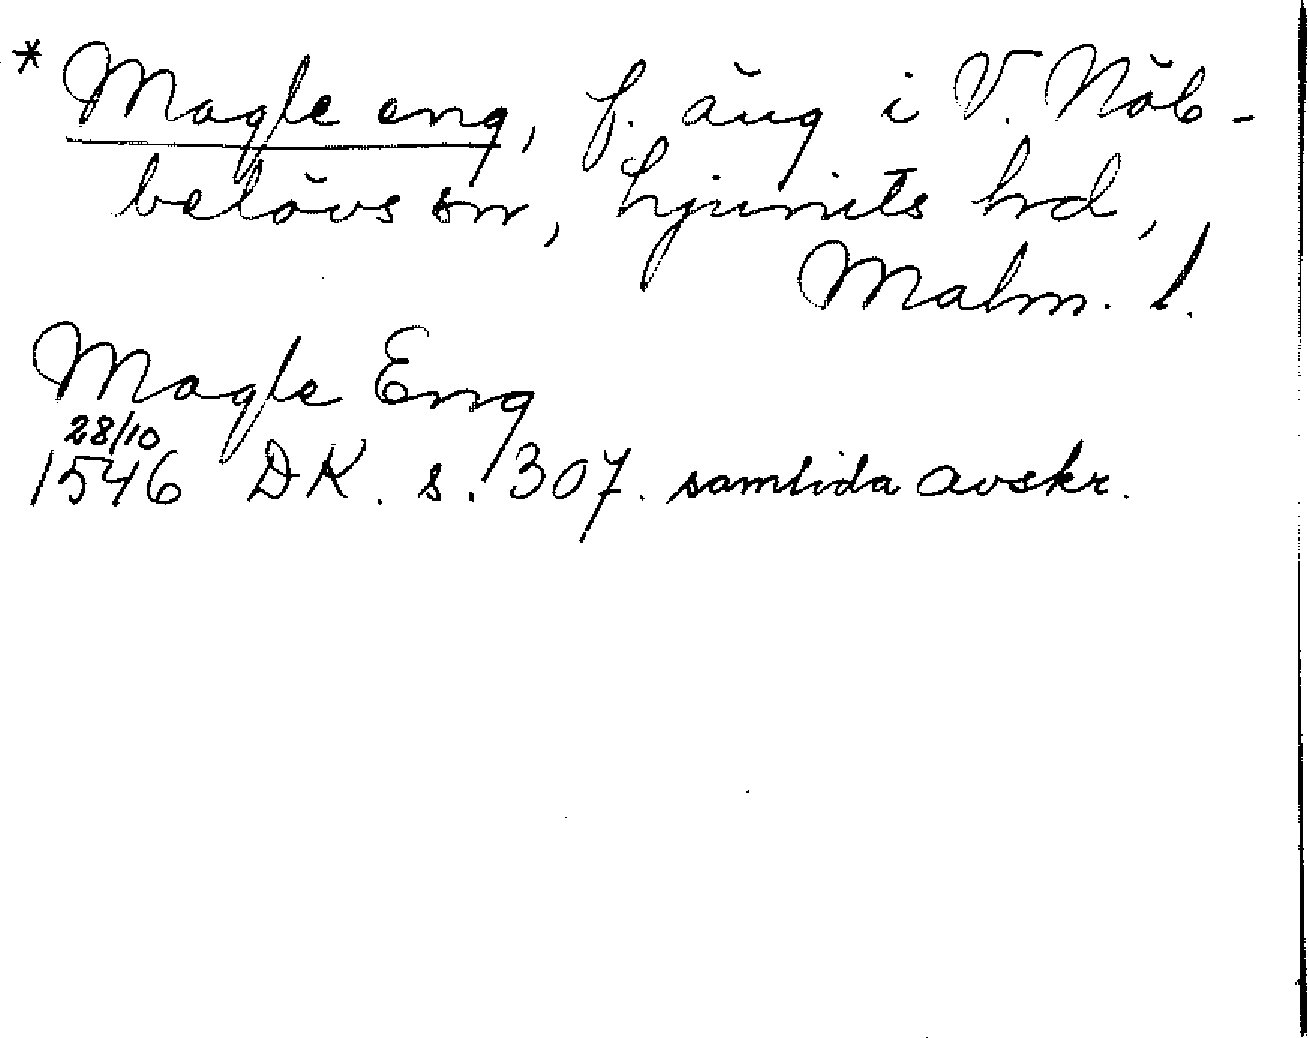 * Magle eng, f. äng i V. Näb-
belövs sn, Ljunits hd,
Malm. l.
Magle Eng
28/10
1546 DK. s. 307. samtida avskr.